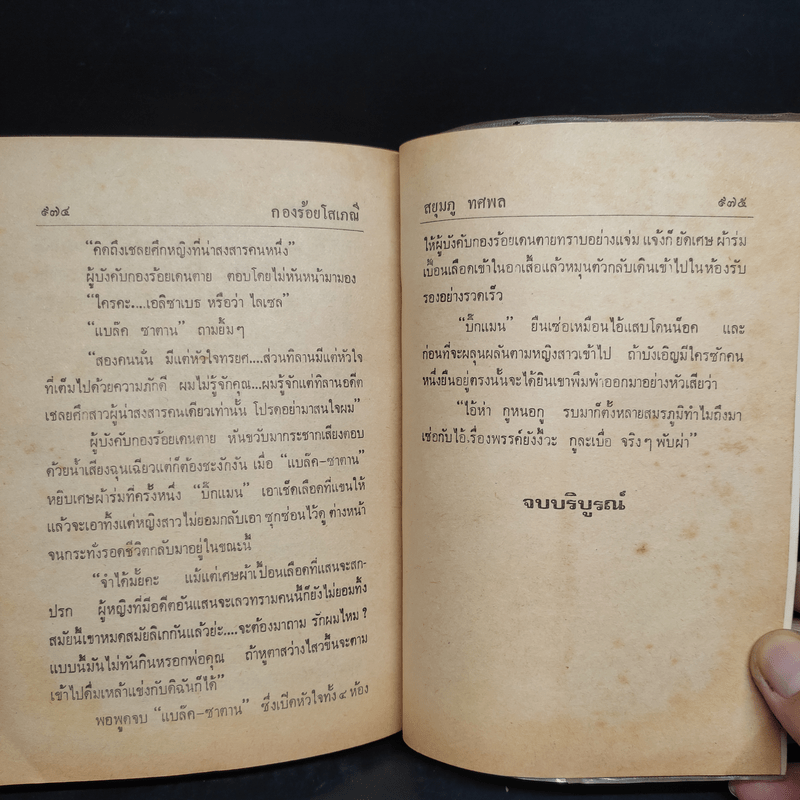 ๙๗๔ กองร้อยโสเภณี
“คิดถึงเชลยศึกหญิงที่น่าสงสารคนหนึ่ง”
ผู้บังคับกองร้อยเดนตาย ตอบโดยไม่หันหน้ามามอง
“ใครคะ....เอลิซาเบธ หรือว่า ไลเซล”
“แบล๊ค ซาตาน” ถามยิ้มๆ
“สองคนนั่น มีแต่หัวใจทรยศ....ส่วนทิลานมีแต่หัวใจ
ที่เต็มไปด้วยความภักดี ผมไม่รู้จักคุณ...ผมรู้จักแต่ทิลานอดีต
เชลยศึกสาวผู้น่าสงสารคนเดียวเท่านั้น โปรดอย่ามาสนใจผม”
ผู้บังคับกองร้อยเดนตาย หันขวับมากระชากเสียงตอบ
ด้วยน้ำเสียงฉุนเฉียวแต่ก็ต้องชะงักงัน เมื่อ “แบล๊ค-ซาตาน”
หยิบเศษผ้าร่มที่ครั้งหนึ่ง “บิ๊กแมน” เอาเช็ดเลือดที่แขนให้
แล้วจะเอาทิ้งแต่หญิงสาวไม่ยอมกลับเอา ซุกซ่อนไว้ดู ต่างหน้า
จนกระทั่งรอดชีวิตกลับมาอยู่ในขณะนี้
“จำได้มั้ยคะ แม้แต่เศษผ้าเปื้อนเลือดที่แสนจะสก-
ปรก ผู้หญิงที่มีอดีตอันแสนจะเลวทรามคนนี้ก็ยังไม่ยอมทิ้ง
สมัยนี้เขาหมดสมัยลิเกกันแล้วย่ะ....จะต้องมาถาม รักผมไหม ?
แบบนี้มันไม่ทันกินหรอกพ่อคุณ ถ้าหูตาสว่างไสวขึ้นจะตาม
เข้าไปดื่มเหล้าแข่งกับดิฉันก็ได้”
พอพูดจบ “แบล๊ค-ซาตาน” ซึ่งเปิดหัวใจทั้ง ๔ ห้อง
สยุมภู ทศพล ๙๗๕
ให้ผู้บังคับกองร้อยเดนตายทราบอย่างแจ่ม แจ้งก็ ยัดเศษ ผ้าร่ม
เปื้อนเลือดเข้าในอกเสื้อแล้วหมุนตัวกลับเดินเข้าไปในห้องรับ
รองอย่างรวดเร็ว
“บิ๊กแมน” ยืนเซ่อเหมือนไอ้แสบโดนน็อค และ
ก่อนที่จะผลุนผลันตามหญิงสาวเข้าไป ถ้าบังเอิญมีใครซักคน
หนึ่งยืนอยู่ตรงนั้นจะได้ยินเขาพึมพำออกมาอย่างหัวเสียว่า
“ไอ้ห่า กูหนอกู รบมาก็ตั้งหลายสมรภูมิทำไมถึงมา
เซ่อกับไอ้เรื่องพรรค์ยังงี้วะ กูละเบื่อ จริงๆ พับผ่า”
จบบริบูรณ์